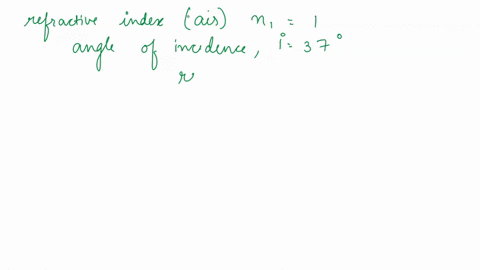 refractive index (air) n₁ = 1
angle of incidence, i = 37°
r